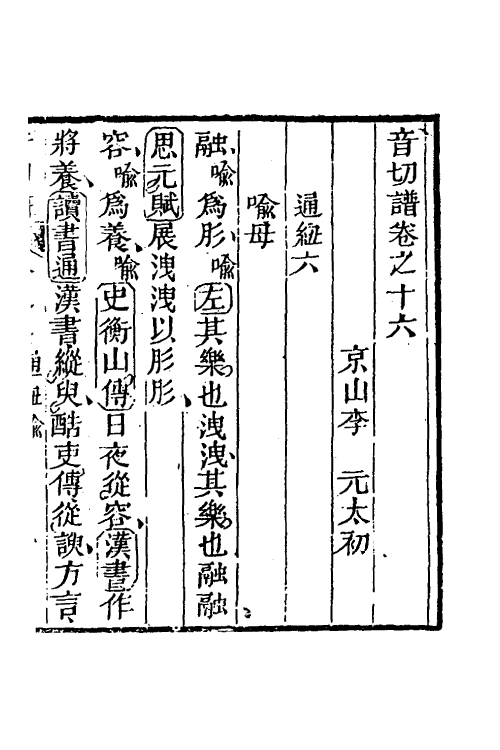 音切譜卷之十六
京山李 元太初
通紐六
喩母
融喩爲肜喩左其樂也洩洩其樂也融融
思元賦展洩洩以肜肜
容喩爲養喩史衡山傳日夜從容漢書作
將養讀書通漢書縱臾酷吏傳從諛方言
通紐喩